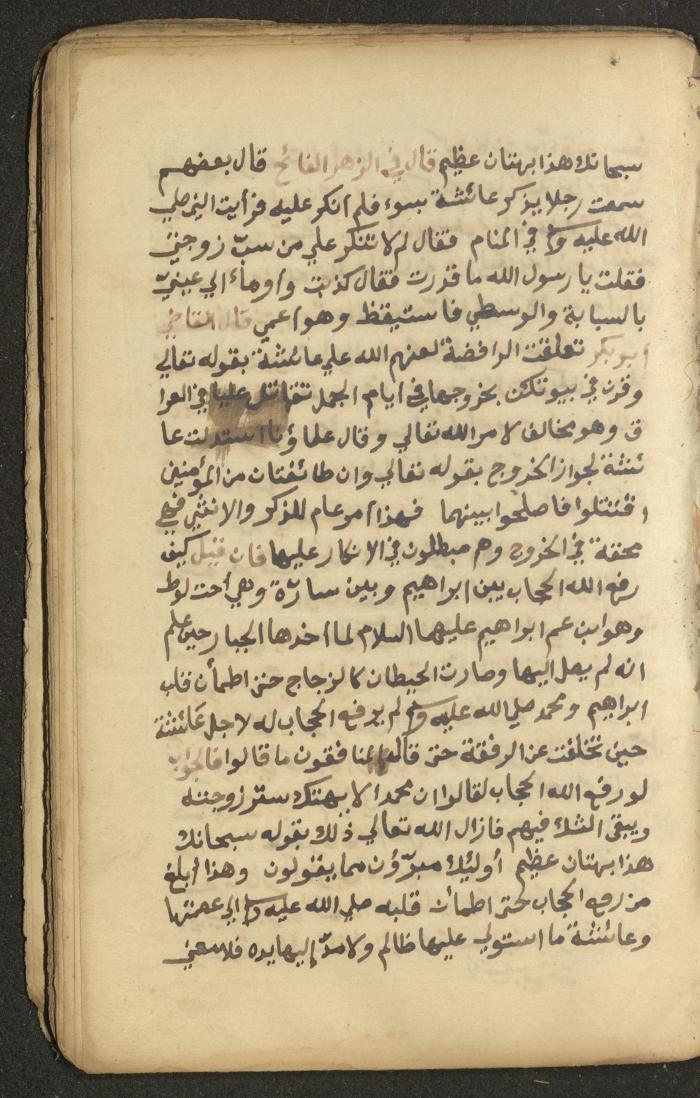 سبحانك هذا بهتان عظيم قال في الزهر الفائح قال بعضهم
سمعت رجلا يذكر عائشة بسوء فلم أنكر عليه فرأيت النبي صلي
الله عليه وم في المنام فقال لم لا تنكر علي من سبّ زوجتي
فقلت يا رسول الله ما قدرت فقال كذبت وأومأ الي عينيّ
بالسبابة والوسطي فاستيقظ وهو أعمي قال القاضي
أبو بكر تعلقت الرافضة لعنهم الله علي عائشة بقوله تعالي
وقرن في بيوتكن بخروجها في أيام الجمل تقاتل عليا في العرا
ق وهو مخالف لامر الله تعالي وقال علماؤنا استدلت عا
ئشة لجواز الخروج بقوله تعالي وان طائفتان من المؤمنين
اقتتلوا فاصلحوا بينهما فهذا أمر عام للذكر والانثي فهي
محقة في الخروج وهم مبطلون في الانكار عليها فان قيل كيف
رفع الله الحجاب بين ابراهيم وبين سارّة وهي أخت لوط
وهو ابن عم ابراهيم عليهما السلام لما أخذها الجبار حين علم
انه لم يصل اليها وصارت الحيطان كالزجاج حتي اطمأن قلب
ابراهيم ومحمد صلي الله عليه وم لم يرفع الحجاب له لاجل عائشة
حين تخلفت عن الرفقة حتي قال المنافقون ما قالوا فالجواب
لو رفع الله الحجاب لقالوا ان محمدا لا يهتك ستر زوجته
ويبقي الشك فيهم فازال الله تعالي ذلك بقوله سبحانك
هذا بهتان عظيم أولئك مبرّؤن مما يقولون وهذا أبلغ
من رفع الحجاب حتي اطمأن قلبه صلي الله عليه وم الي عصمتها
وعائشة ما استولي عليها ظالم ولا مدّ إليها يده فلا معني